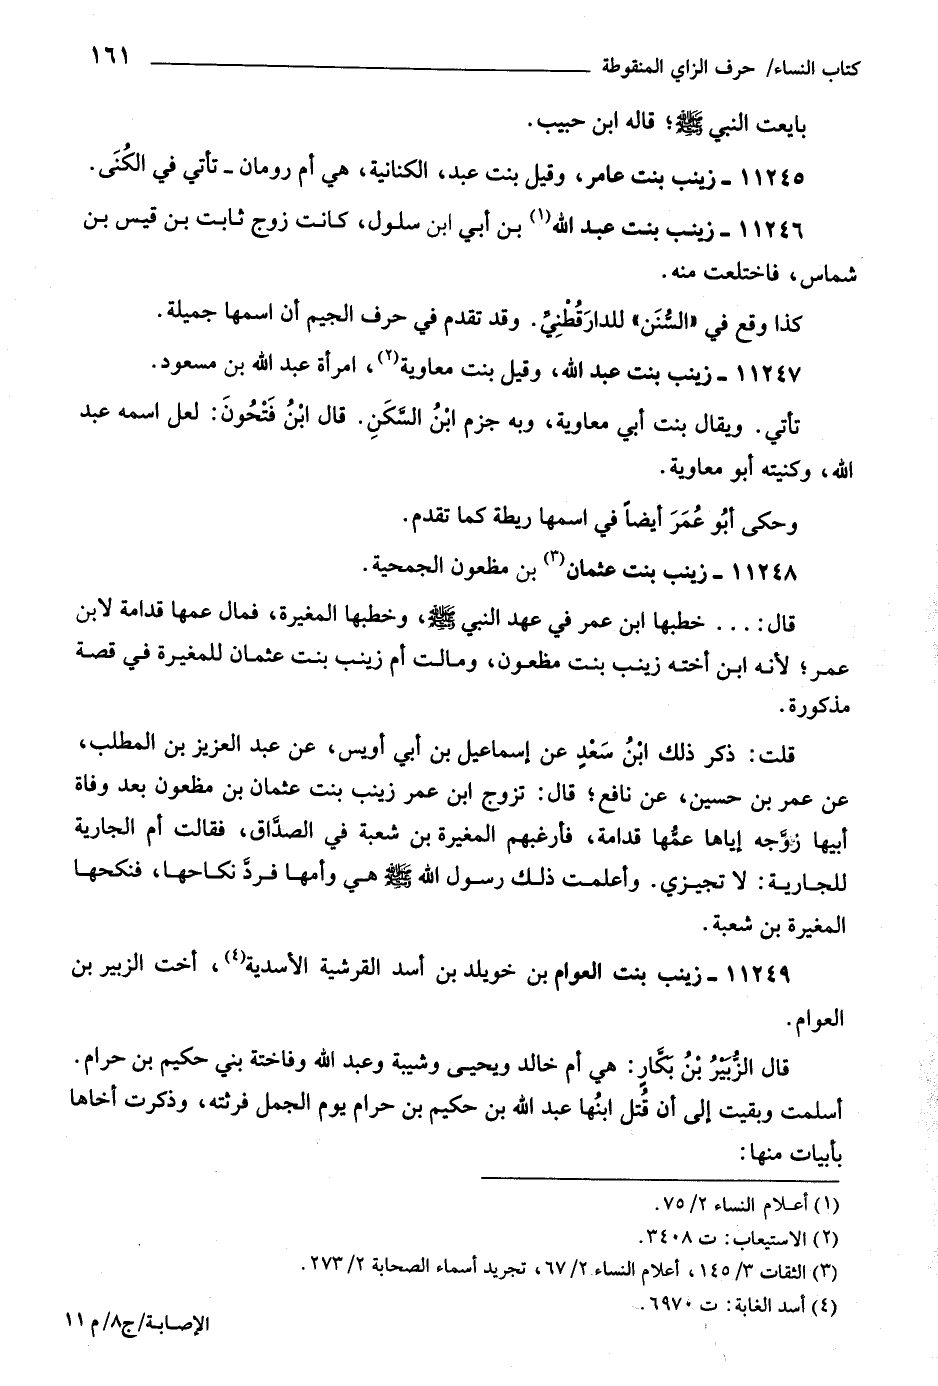 كتاب النساء/ حرف الزاي المنقوطة ١٦١
بايعت النبي ﷺ؛ قاله ابن حبيب.
١١٢٤٥ ـ زينب بنت عامر، وقيل بنت عبد، الكنانية، هي أم رومان ـ تأتي في الكُنَى.
١١٢٤٦ ـ زينب بنت عبد الله(١) بن أبي ابن سلول، كانت زوج ثابت بن قيس بن
شماس، فاختلعت منه.
كذا وقع في «السُّنَن» للدارَقُطْنِيِّ. وقد تقدم في حرف الجيم أن اسمها جميلة.
١١٢٤٧ ـ زينب بنت عبد الله، وقيل بنت معاوية(٢)، امرأة عبد الله بن مسعود.
تأتي. ويقال بنت أبي معاوية، وبه جزم ابْنُ السَّكَنِ. قال ابْنُ فَتْحُونَ: لعل اسمه عبد
الله، وكنيته أبو معاوية.
وحكى أبُو عُمَرَ أيضاً في اسمها ريطة كما تقدم.
١١٢٤٨ ـ زينب بنت عثمان(٣) بن مظعون الجمحية.
قال: ... خطبها ابن عمر في عهد النبي ﷺ، وخطبها المغيرة، فمال عمها قدامة لابن
عمر؛ لأنه ابن أخته زينب بنت مظعون، ومالت أم زينب بنت عثمان للمغيرة في قصة
مذكورة.
قلت: ذكر ذلك ابْنُ سَعْدٍ عن إسماعيل بن أبي أويس، عن عبد العزيز بن المطلب،
عن عمر بن حسين، عن نافع؛ قال: تزوج ابن عمر زينب بنت عثمان بن مظعون بعد وفاة
أبيها زوَّجه إياها عمُّها قدامة، فأرغبهم المغيرة بن شعبة في الصدَّاق، فقالت أم الجارية
للجارية: لا تجيزي. وأعلمت ذلك رسول الله ﷺ هي وأمها فردَّ نكاحها، فنكحها
المغيرة بن شعبة.
١١٢٤٩ ـ زينب بنت العوام بن خويلد بن أسد القرشية الأسدية(٤)، أخت الزبير بن
العوام.
قال الزُّبَيْرُ بْنُ بَكَّارٍ: هي أم خالد ويحيى وشيبة وعبد الله وفاختة بني حكيم بن حرام.
أسلمت وبقيت إلى أن قُتل ابنُها عبد الله بن حكيم بن حرام يوم الجمل فرثته، وذكرت أخاها
بأبيات منها:
(١) أعلام النساء ٢/ ٧٥.
(٢) الاستيعاب: ت ٣٤٠٨.
(٣) الثقات ٣/ ١٤٥، أعلام النساء ٢/ ٦٧، تجريد أسماء الصحابة ٢/ ٢٧٣.
(٤) أسد الغابة: ت ٦٩٧٠.
الإصابة/ج٨/م ١١